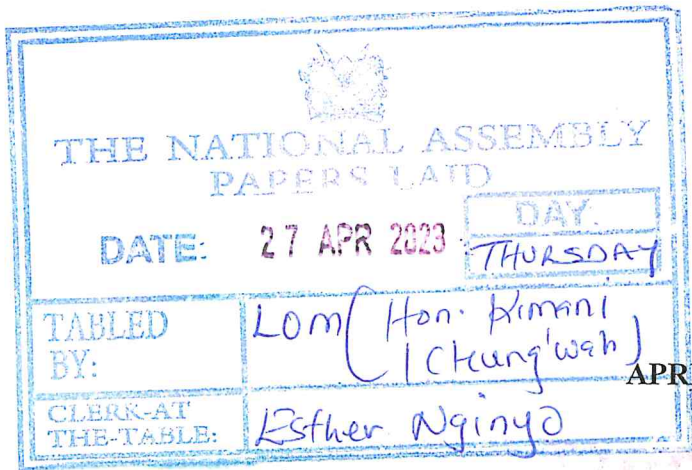 THE NATIONAL ASSEMBLY
PAPERS LAID
DATE: 27 APR 2023 DAY.
THURSDAY
TABLED BY: LOM (Hon. Kimani Icheung'wah)
APR
CLERK-AT THE-TABLE: Esther Nginyo